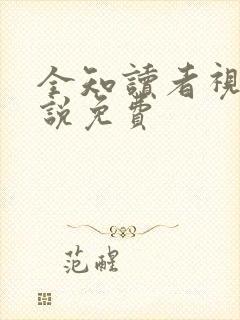 全知讀者視
說免費
范醒